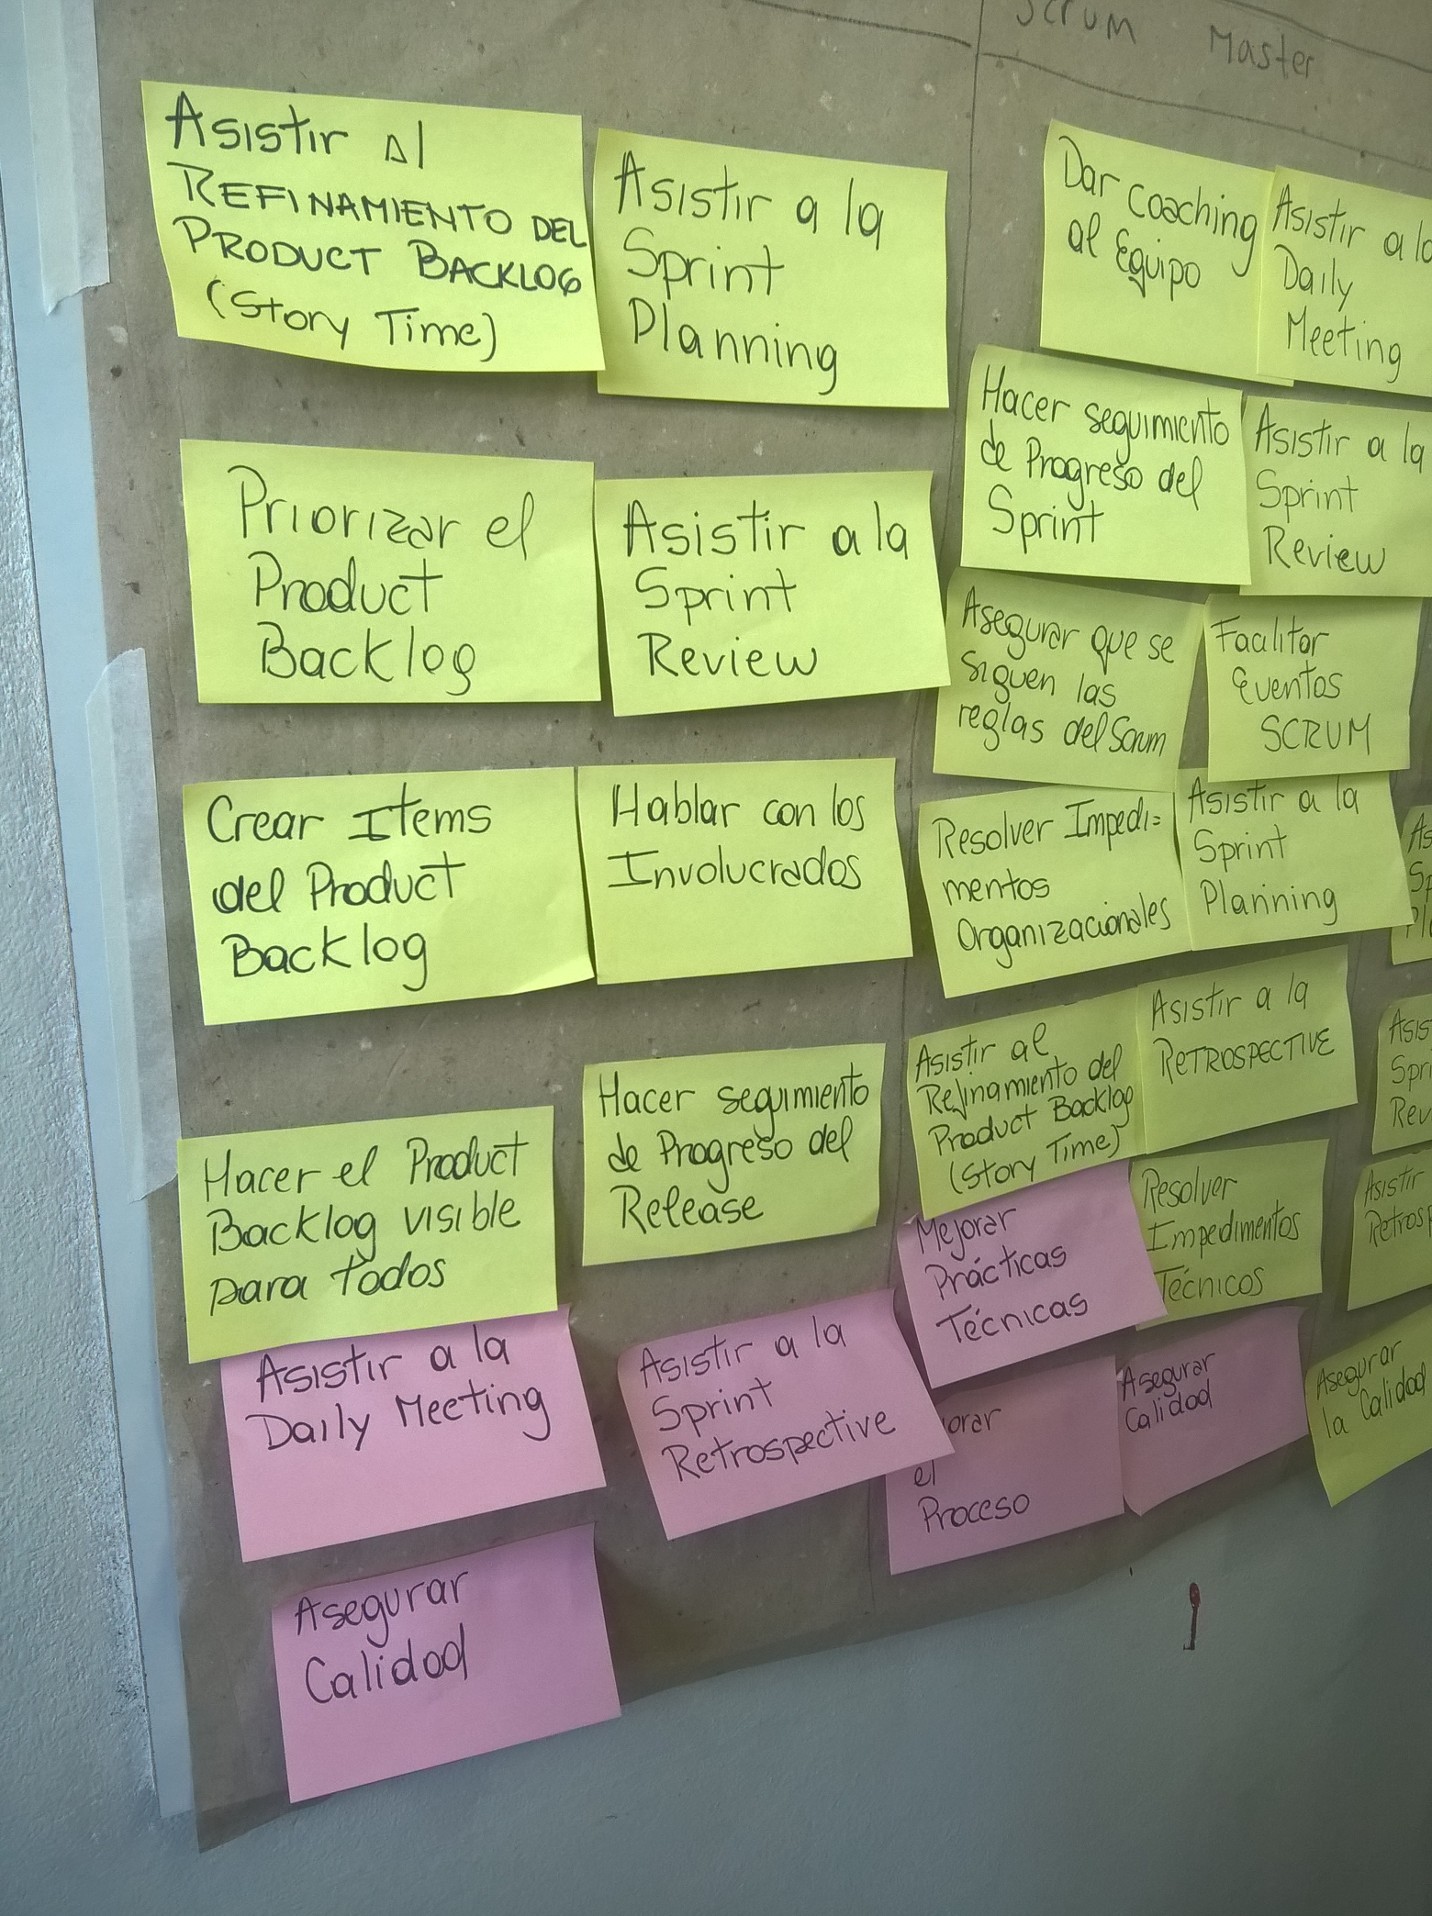 Scrum Master
Asistir Al
REFINAMIENTO DEL
PRODUCT BACKLOG
(Story Time)
Asistir a la
Sprint
Planning
Priorizar el
Product
Backlog
Asistir a la
Sprint
Review
Crear Items
del Product
Backlog
Hablar con los
Involucrados
Hacer el Product
Backlog visible
para todos
Hacer seguimiento
de Progreso del
Release
Asistir a la
Daily Meeting
Asistir a la
Sprint
Retrospective
Asegurar
Calidad
Dar coaching
al Equipo
Asistir a la
Daily
Meeting
Hacer seguimiento
de Progreso del
Sprint
Asistir a la
Sprint
Review
Asegurar que se
siguen las
reglas del Scrum
Facilitar
Eventos
SCRUM
Resolver Impedi=
mentos
Organizacionales
Asistir a la
Sprint
Planning
Asistir al
Refinamiento del
Product Backlog
(Story Time)
Asistir a la
RETROSPECTIVE
Mejorar
Prácticas
Técnicas
Resolver
Impedimentos
Técnicos
orar
el
Proceso
Asegurar
Calidad
As
Sp
Pl
Asis
Spri
Rev
Asistir
Retrosp
Asegurar
la Calidad